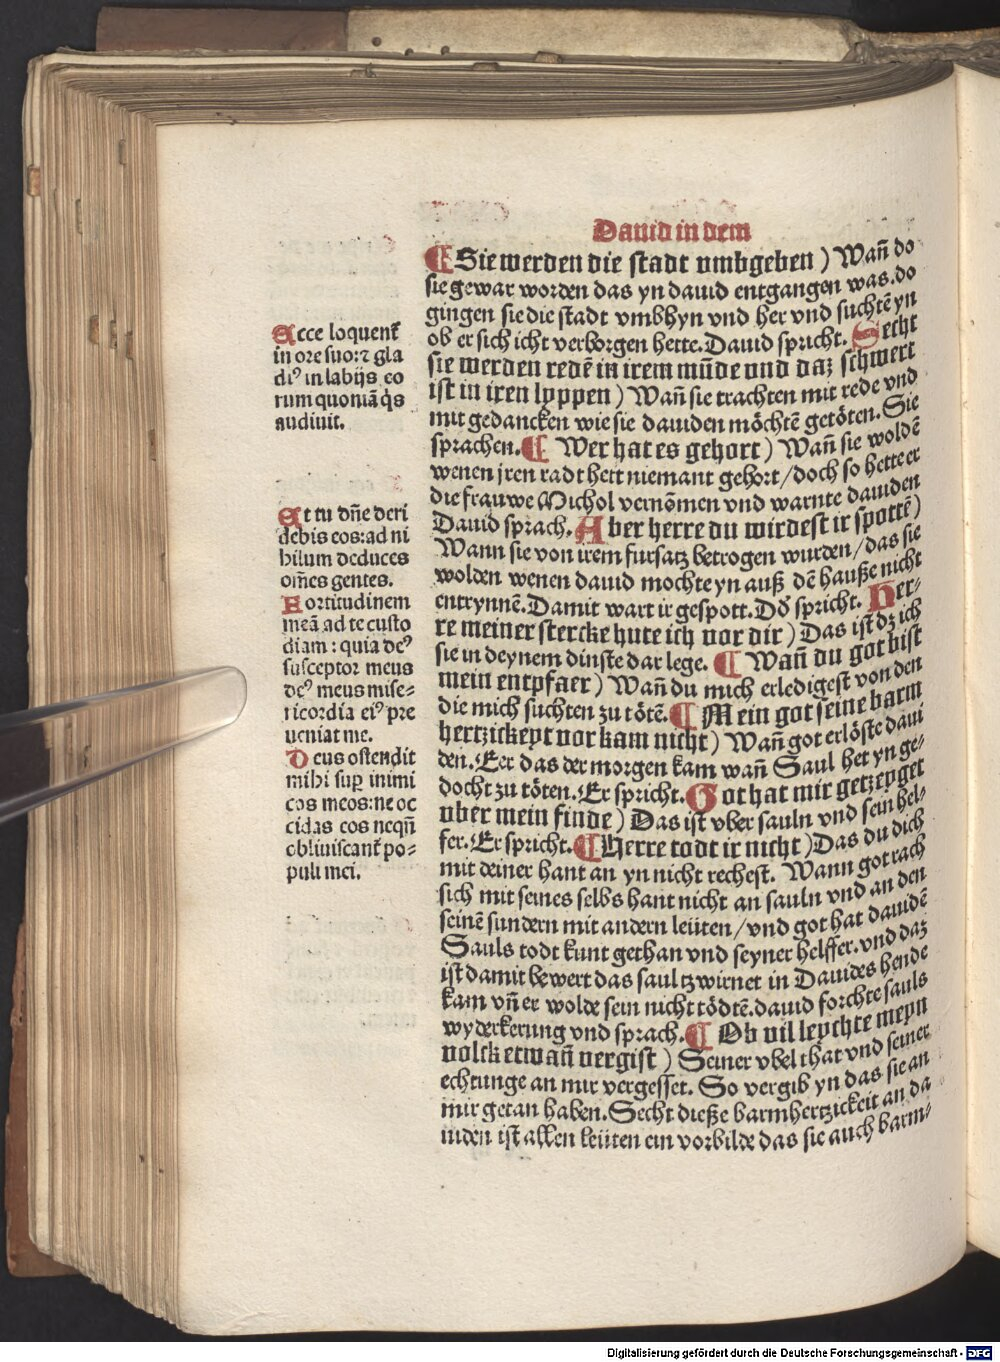 Dauid in dem
¶ Sie werden die stadt vmbgeben) Wañ do
sie gewar worden das yn dauid entgangen was. do
gingen sie die stadt vmbhyn vnd her vnd suchtē yn
ob er sich icht verborgen hette. Dauid spricht. Secht
sie werden redē in irem mūde vnd daz schwert
ist in iren lyppen) Wañ sie trachten mit rede vnd
mit gedancken wie sie dauiden möchtē getöten. Sie
sprachen. ¶ Wer hat es gehort) Wañ sie woldē
wenen jren radt hett niemant gehort/doch so hette er
die frauwe Michol vernōmen vnd warnte dauiden
Dauid sprach. Aber herre du wirdest ir spottē)
Wann sie von irem fursatz betrogen wurden/das sie
wolden wenen dauid mochte yn auß dē hauße nicht
entrynnē. Damit wart ir gespott. Dō spricht. Her-
re meiner stercke hute ich vor dir) Das ist dz ich
sie in deynem dinste dar lege. ¶ Wañ du got bist
mein entpfaer) Wañ du mich erledigest von den
die mich suchten zu tötē. ¶ Mein got seine barm
hertzickeyt vor kam nicht) Wañ got erlöste daui
den. Eer das der morgen kam wañ Saul het yn ge-
docht zu töten. Er spricht. Got hat mir getzeyget
vber mein finde) Das ist vber sauln vnd sein hel-
fer. Er spricht. ¶ Herre todt ir nicht) Das du dich
mit deiner hant an yn nicht rechest. Wann got rach
sich mit seines selbs hant nicht an sauln vnd an den
seinē sundern mit andern leüten/vnd got hat dauidē
Sauls todt kunt gethan vnd seyner helffer. vnd daz
ist damit bewert das saul tzwirnet in Dauides hende
kam vñ er wolde sein nicht tödtē. dauid forchte sauls
wyderkerung vnd sprach. ¶ Ob vil leychte meyn
volck etwañ vergist) Seiner vbel that vnd seiner
echtunge an mir vergesset. So vergib yn das sie an
mir getan haben. Secht dieße barmhertzickeit an da
uiden ist allen leüten ein vorbilde das sie auch barm-
Ecce loquent̄
in ore suo: ⁊ gla
diꝰ in labijs eo
rum quoniā q̇s
audiuit.
Et tu dñe deri
debis eos: ad ni
hilum deduces
om̄es gentes.
Fortitudinem
meā ad te custo
diam : quia deꝰ
susceptor meus
deꝰ meus mise-
ricordia eiꝰ pre
ueniat me.
Deus ostendit
mihi suꝑ inimi
cos meos: ne oc
cidas eos neqn̄
obliuiscant̄ po-
puli mei.
Digitalisierung gefördert durch die Deutsche Forschungsgemeinschaft - DFG